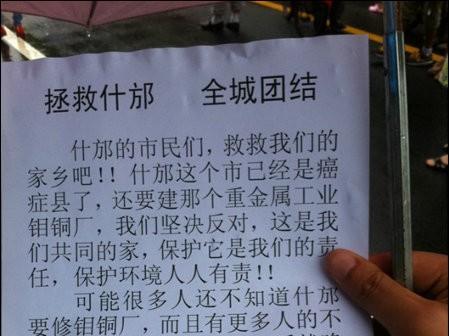 拯救什邡 全城团结
什邡的市民们，救救我们的
家乡吧!! 什邡这个市已经是癌
症县了，还要建那个重金属工业
钼铜厂，我们坚决反对，这是我
们共同的家，保护它是我们的责
任，保护环境人人有责!!
可能很多人还不知道什邡
要修钼铜厂，而且有更多人的不